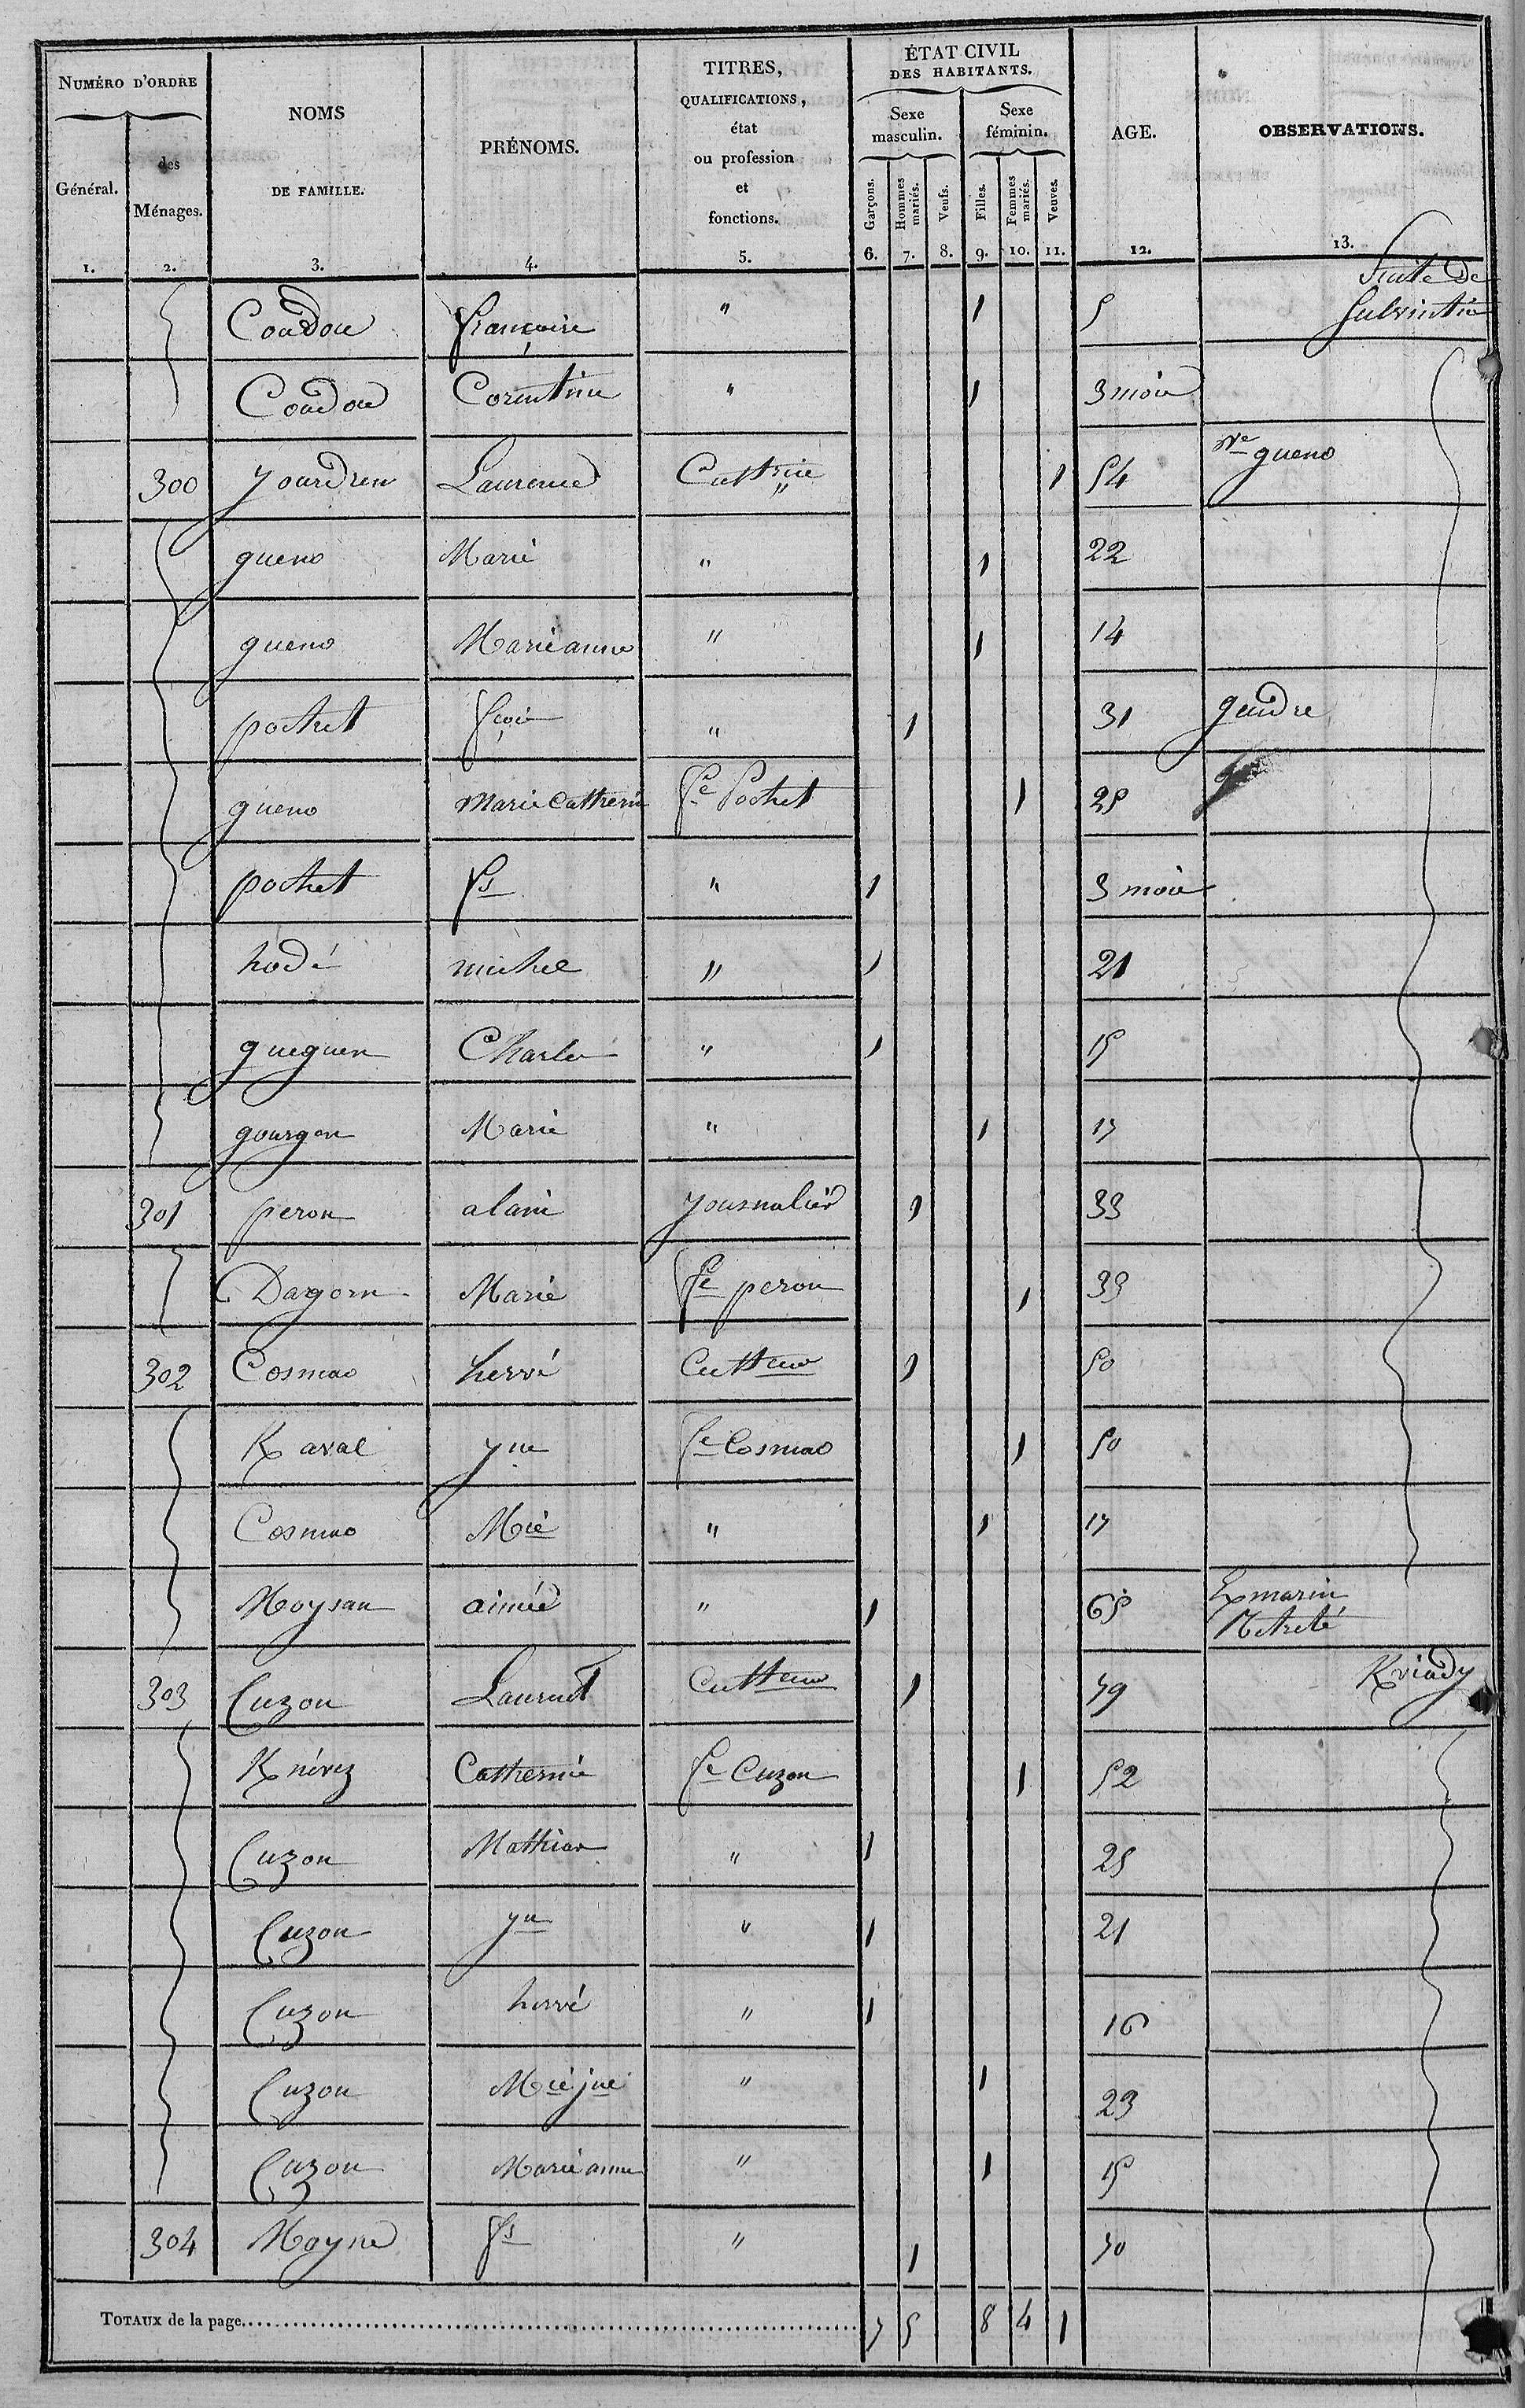 NUMÉRO D'ORDRE
Général.
des
Ménages.
NOMS
DE FAMILLE.
PRÉNOMS.
TITRES,
QUALIFICATIONS,
état
ou profession
et
fonctions.
ÉTAT CIVIL
DES HABITANTS.
Sexe
masculin.
Sexe
féminin.
Garçons.
Hommes
mariés.
Veufs.
Filles.
Femmes
mariés.
Veuves.
AGE.
OBSERVATIONS.
1. 2. 3. 4. 5. 6. 7. 8. 9. 10. 11. 12. 13.
Suite de
Coudou françoise " 1 5
Coudou Corentine " 1 3 mois
300 jourdren Laurence Cultrice " 1 54 Ve gueno
gueno Marie " 1 22
gueno Marie anne " 1 14
pochet fçois " 1 31 gendre
gueno Marie Catherin fe Pochet 1 25
pochet fs " 1 3 mois
hodé michel " 1 21
gueguen Charles " 1 15
gourgon Marie " 1 17
301 peron alain journalier 1 33
Dagorn Marie fe peron 1 33
302 Cosmao hervé Culteur 1 50
K aval yne fe Cosmao 1 50
Cosmao Mie " 1 17
Moysan aimée " 1 65 Ex marin
Retreté
303 Cuzon Laurent Culteur 1 59 Kviady
K névez Catherine fe Cuzon 1 52
Cuzon Mathias " 1 25
Cuzon yn " 1 21
Cuzon hervé " 1 16
Cuzon Mie jne " 1 23
Cuzon Marie anne " 1 15
304 Moysan fs " 1 50
TOTAUX de la page 7 5 8 4 1